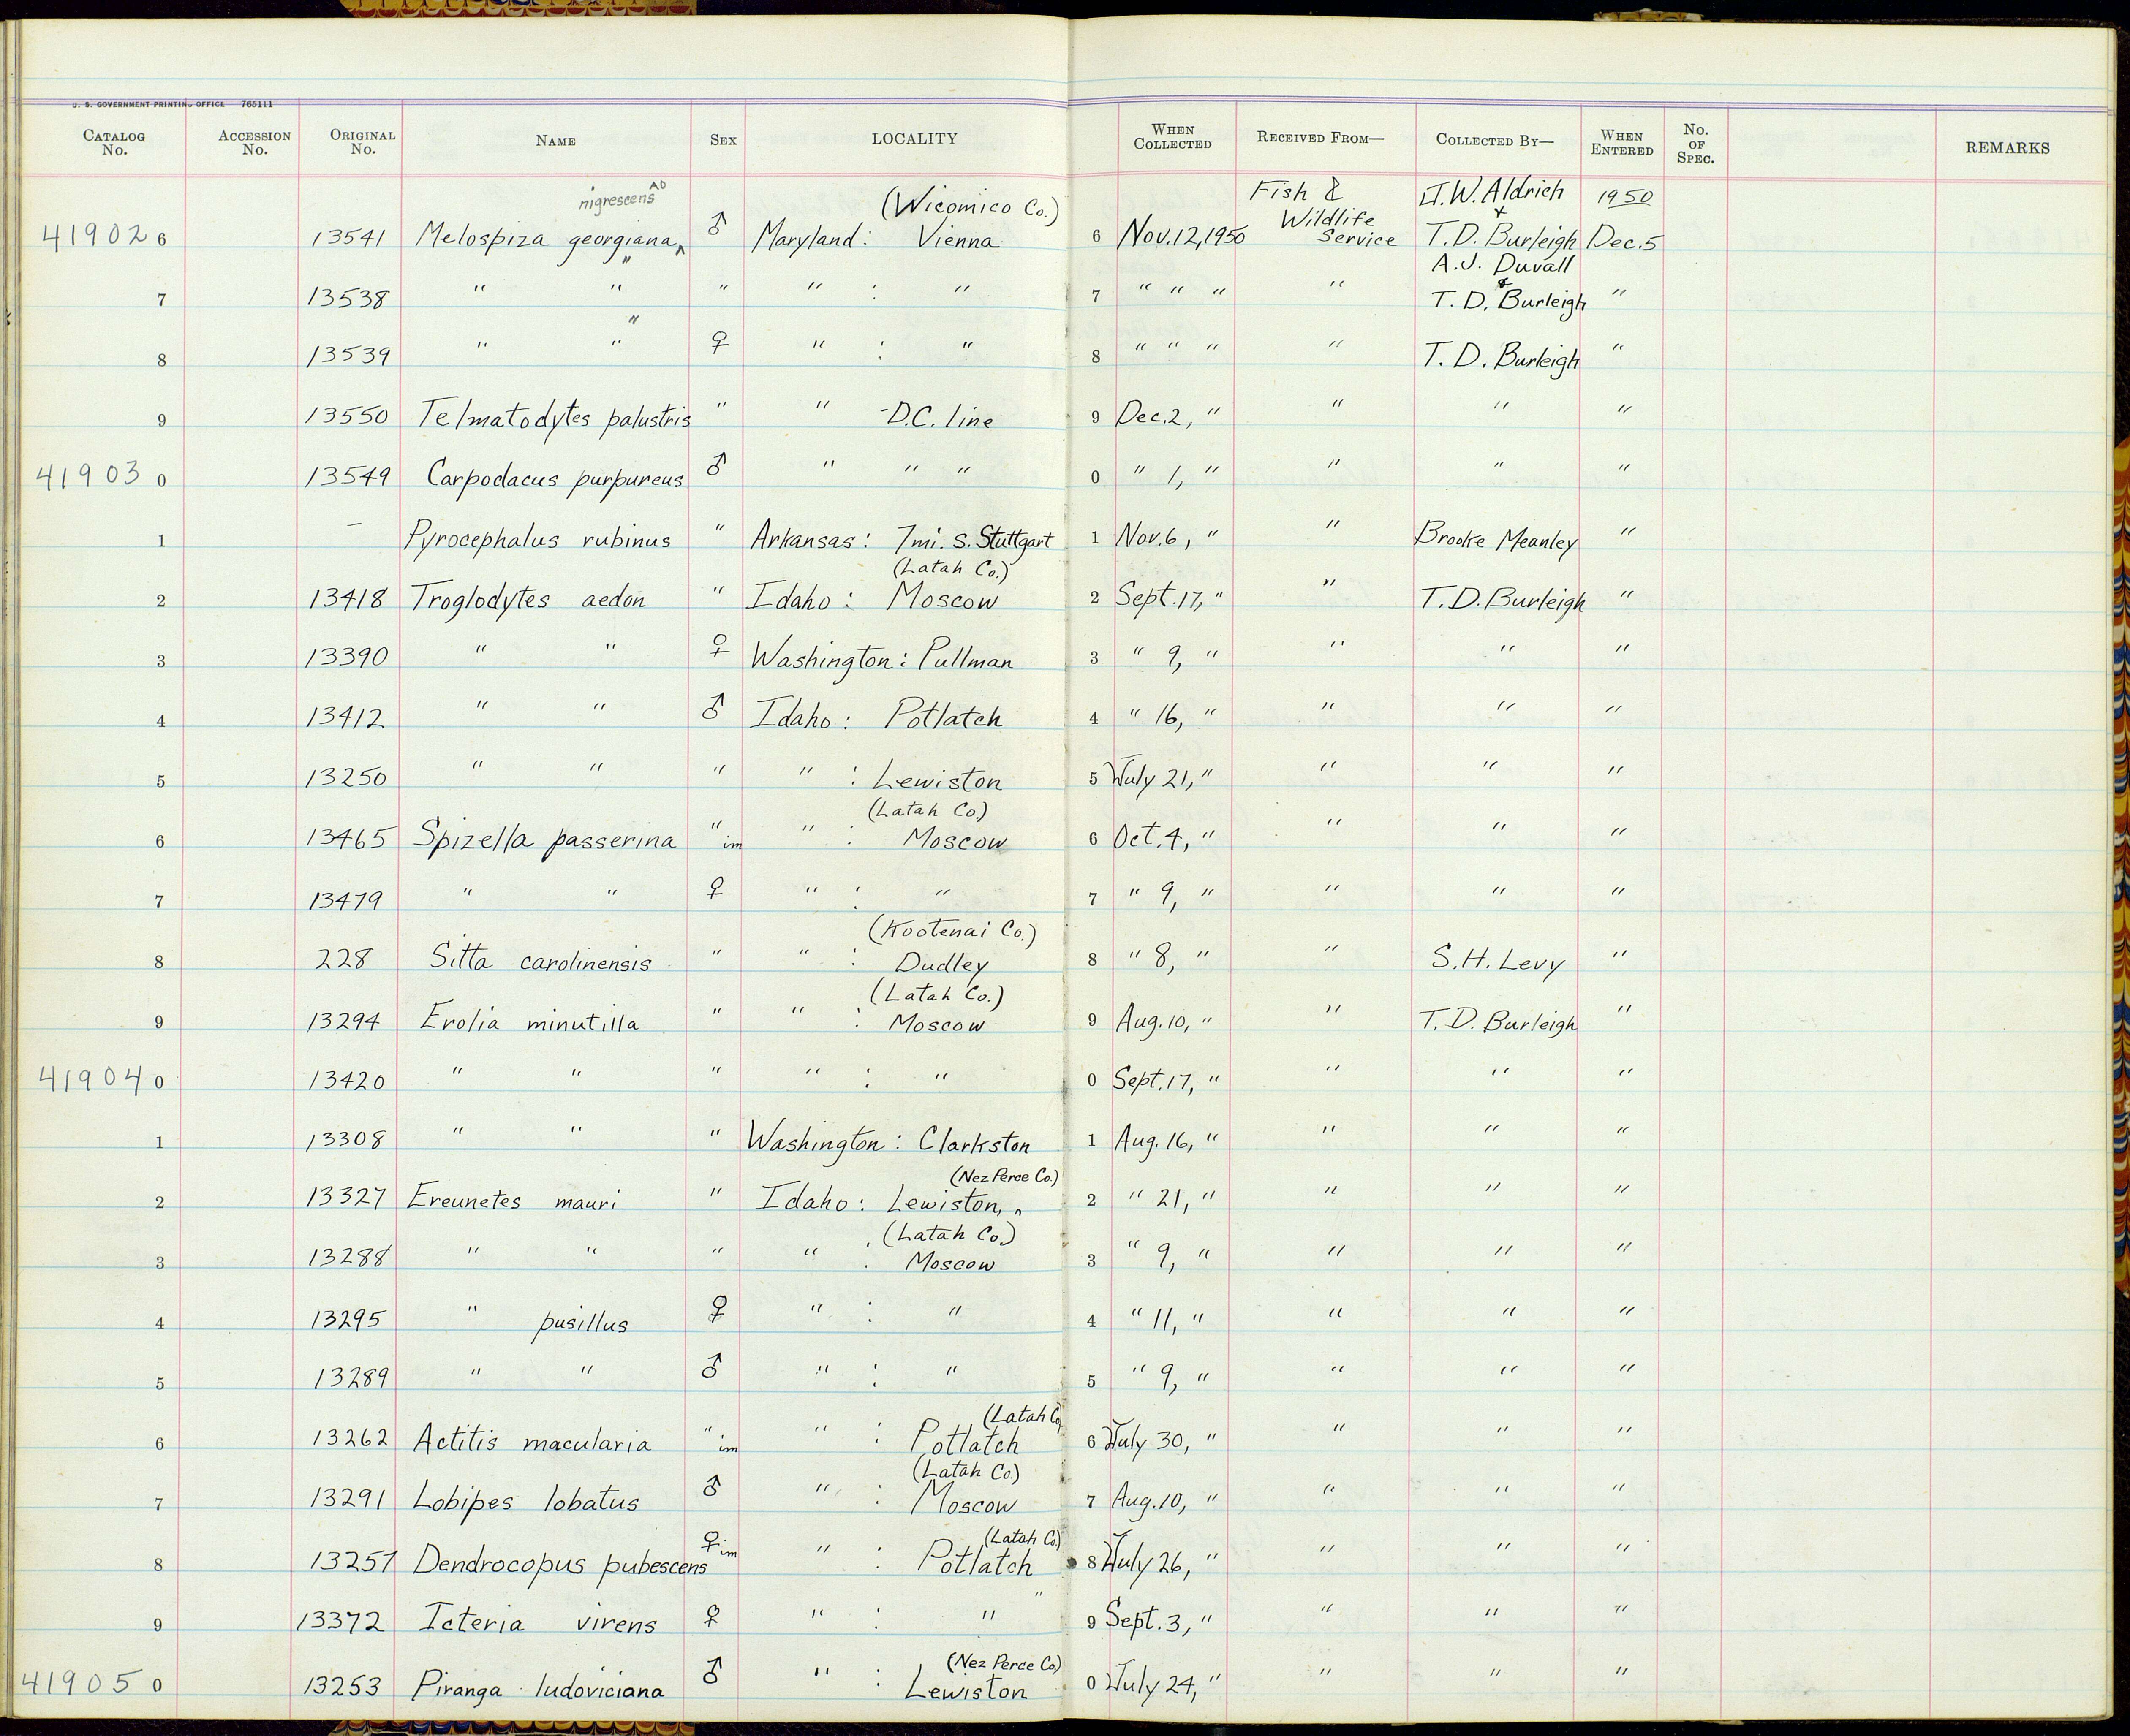 U. S. GOVERNMENT PRINTING OFFICE 765111
CATALOG No. ACCESSION No. ORIGINAL No. NAME SEX LOCALITY WHEN COLLECTED RECEIVED FROM— COLLECTED BY— WHEN ENTERED No. OF SPEC. REMARKS
nigrescens AD (Wicomico Co.) Fish & J.W. Aldrich 1950
41902 6 13541 Melospiza georgiana ‸ ♂ Maryland: Vienna 6 Nov. 12, 1950 Wildlife Service + T.D. Burleigh Dec. 5
" A.J. Duvall
7 13538 " " " " : " 7 " " " " & T. D. Burleigh "
"
8 13539 " " ♀ " : " 8 " " " " T. D. Burleigh "
9 13550 Telmatodytes palustris " " -D.C. line 9 Dec. 2, " " " "
41903 0 13549 Carpodacus purpureus ♂ " " " 0 " 1, " " " "
1 — Pyrocephalus rubinus " Arkansas: 7 mi. S. Stuttgart 1 Nov. 6, " " Brooke Meanley "
(Latah Co.)
2 13418 Troglodytes aedon " Idaho: Moscow 2 Sept. 17, " " T.D. Burleigh "
3 13390 " " ♀ Washington: Pullman 3 " 9, " " " "
4 13412 " " ♂ Idaho: Potlatch 4 " 16, " " " "
5 13250 " " " " : Lewiston 5 July 21, " " " "
(Latah Co.)
6 13465 Spizella passerina " im " : Moscow 6 Oct. 4, " " " "
7 13479 " " ♀ " : " 7 " 9, " " " "
(Kootenai Co.)
8 228 Sitta carolinensis " " : Dudley 8 " 8, " " S.H. Levy "
(Latah Co.)
9 13294 Erolia minutilla " " : Moscow 9 Aug. 10, " " T. D. Burleigh "
41904 0 13420 " " " " : " 0 Sept. 17, " " " "
1 13308 " " " Washington: Clarkston 1 Aug. 16, " " " "
(Nez Perce Co.)
2 13327 Ereunetes mauri " Idaho: Lewiston, " 2 " 21, " " " "
(Latah Co.)
3 13288 " " " " : Moscow 3 " 9, " " " "
4 13295 " pusillus ♀ " : " 4 " 11, " " " "
5 13289 " " ♂ " : " 5 " 9, " " " "
(Latah Co.
6 13262 Actitis macularia " im " : Potlatch 6 July 30, " " " "
(Latah Co.)
7 13291 Lobipes lobatus ♂ " : Moscow 7 Aug. 10, " " " "
(Latah Co.)
8 13257 Dendrocopus pubescens ♀ im " : Potlatch 8 July 26, " " " "
"
9 13372 Icteria virens ♀ " : " 9 Sept. 3, " " " "
(Nez Perce Co.)
41905 0 13253 Piranga ludoviciana ♂ " : Lewiston 0 July 24, " " " "